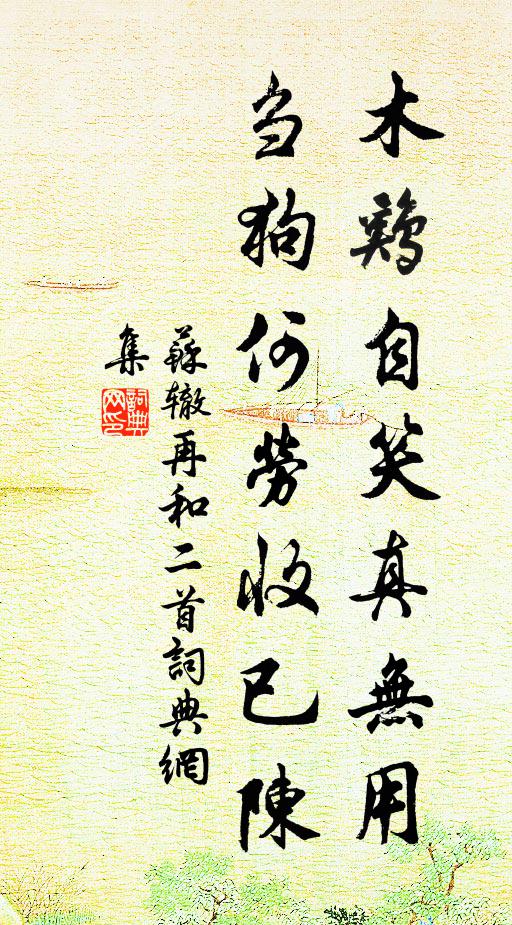 木鷄自笑真無用
刍狗何勞收已陳
蘇辙再和二首詞典網
集
詞典
网印